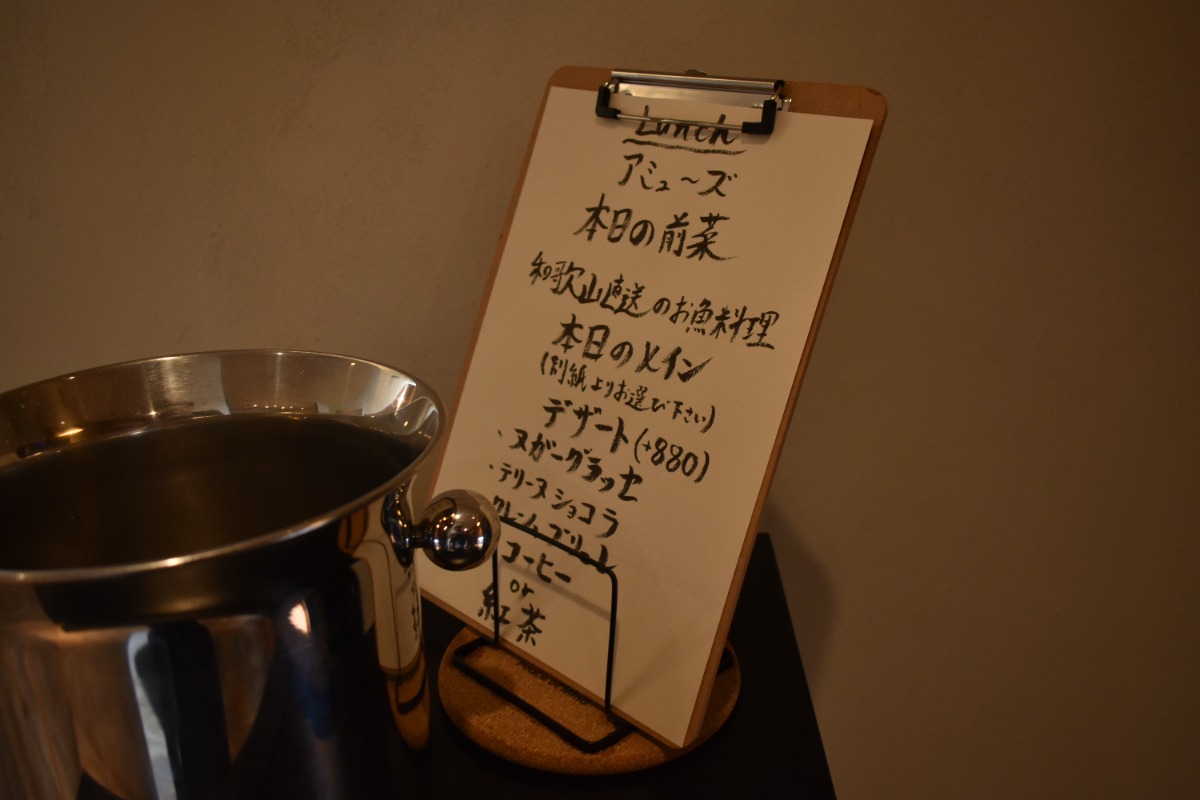 Lunch
アミューズ
本日の前菜
和歌山直送のお魚料理
本日のメイン
(別紙よりお選び下さい)
デザート(+880)
・ヌガーグラッセ
・テリーヌショコラ
クレームブリュレ
コーヒー
or
紅茶